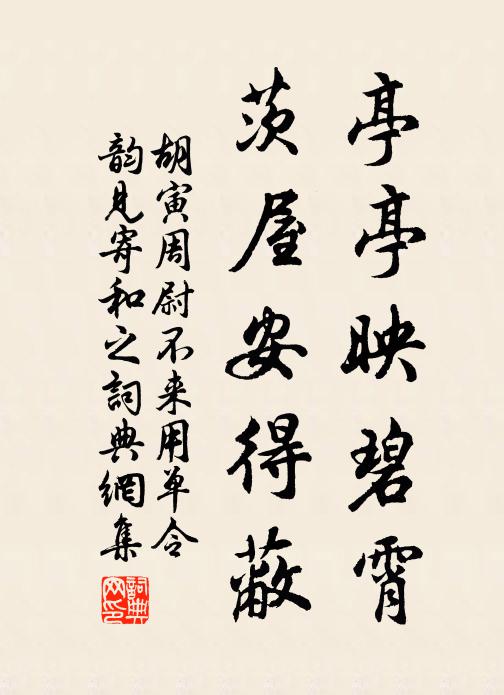 亭亭映碧霄
茨屋安得蔽
胡寅周尉不来用单令
韵见寄和之词典網集
詞典网印